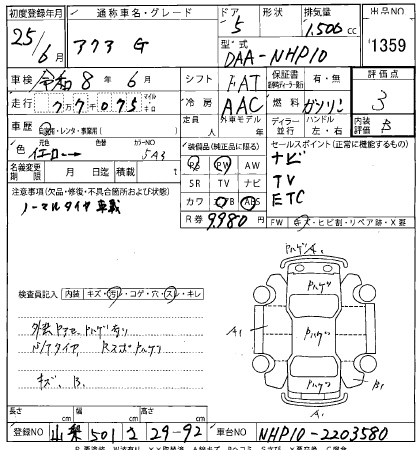 初度登録年月 通称車名・グレード ドア 形状 排気量 出品NO
25/6月 アクア G 5 1,500cc 1359
型式 DAA-NHP10
車検 令和8年6月 シフト FAT 保証書 有・無 評価点
走行 77075 マイル キロ 冷房 AAC 燃料 ガソリン 3
車歴 自家用・レンタ・事業用( ) 定員 人 外車モデル 年 ディーラー 並行 ハンドル 左・右 内装 B
色 元色 イエロー 色替 カラーNO 5A3
装備品(純正品に限る) セールスポイント(正常に機能するもの)
PS PW AW ナビ
名義変更期限 月 日 積載 t SR TV ナビ TV
注意事項(欠品・修復・不具合箇所および状態) カワ エアB ABS ETC
ノーマルタイヤ車載 R券 9,980円 FW キズ・ヒビ割・リペア跡・X要
検査員記入 内装 キズ・汚レ・コゲ・穴・スレ・キレ
外装 ハゲ有り
N/Tタイヤ、Rスポハゲ
キズ、B.
ハゲ A1
ハゲ
A1 ハゲ
ハゲ B1
A1
長さ cm 幅 cm 高さ cm
登録NO 山梨 501 さ 29-92 車台NO NHP10-2203580